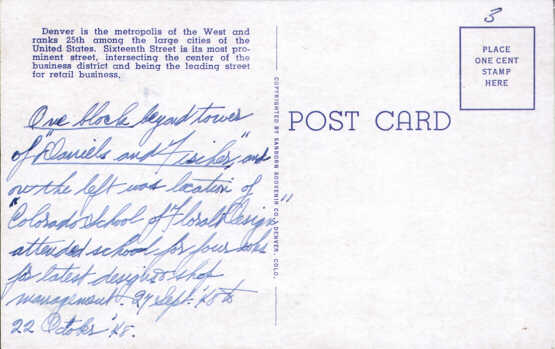 3
PLACE
ONE CENT
STAMP
HERE
Denver is the metropolis of the West and
ranks 25th among the large cities of the
United States. Sixteenth Street is its most pro-
minent street, intersecting the center of the
business district and being the leading street
for retail business.
POST CARD
COPYRIGHTED BY SANBORN SOUVENIR CO., DENVER, COLO.
One block beyond tower
of "Daniels and Fisher," and
on the left was location of
"Colorado School of Floral Design"
attended school for four wks
for latest designs & shop
management. 27 Sept. '48 to
22 Octobr '48.